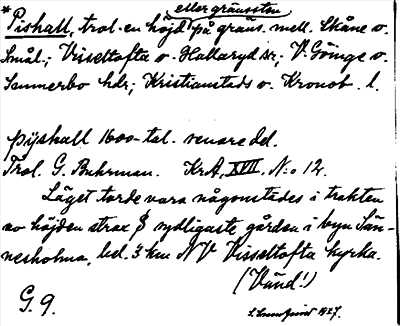 eller gränssten
*Pishall, trol. en höjd på gräns. mell. Skåne o.
Smål.; Visseltofta o. Hallaryd sn. V. Göinge o.
Sunnerbo hdr; Kristianstads o. Kronob. l.
pijshall 1600-tal. senare del.
Trol. G. Buhrman. Kr.A, XVII. N:o 12.
Läget torde vara någonstädes i trakten
av höjden strax S sydligaste gården i byn Sän-
nesholma, bel. 3 km NV Visseltofta kyrka.
(Vänd!)
G. 9.
1927.